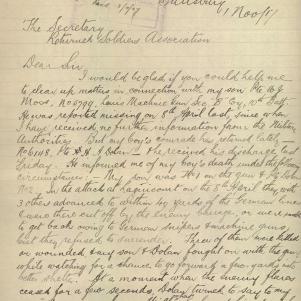 Salisbury
1 Nov/17
The Secretary
Returned Soldiers Association
Dear Sir
I would be glad if you could help me
to clear up matters in connection with my son Pte W J
Moss, No 6799, Lewis Machine Gun Sec B Coy, Batt
He was reported missing on 8th April last, since when
I have received no further information from the Military
Authority. But my boy's comrade has returned lately,
Pte Dolan. He received his discharge last
Friday. He informed me of my boy's death under the following
circumstances; - My son was No 1 on the gun & Pte Dolan
No 2. In the attack at Lagnicourt on the 8th April they with
3 others advanced to within 60 yards of the German lines
were there cut off by the enemy barrage, or were unable
to get back owing to German snipers & machine guns
but they refused to surrender. Three of them were killed
or wounded & my son & Dolan fought on with the gun
while watching for a chance to go forward a few yards into
better shelter. At a moment when the enemy flares
ceased for a few seconds, Dolan turned to say to my